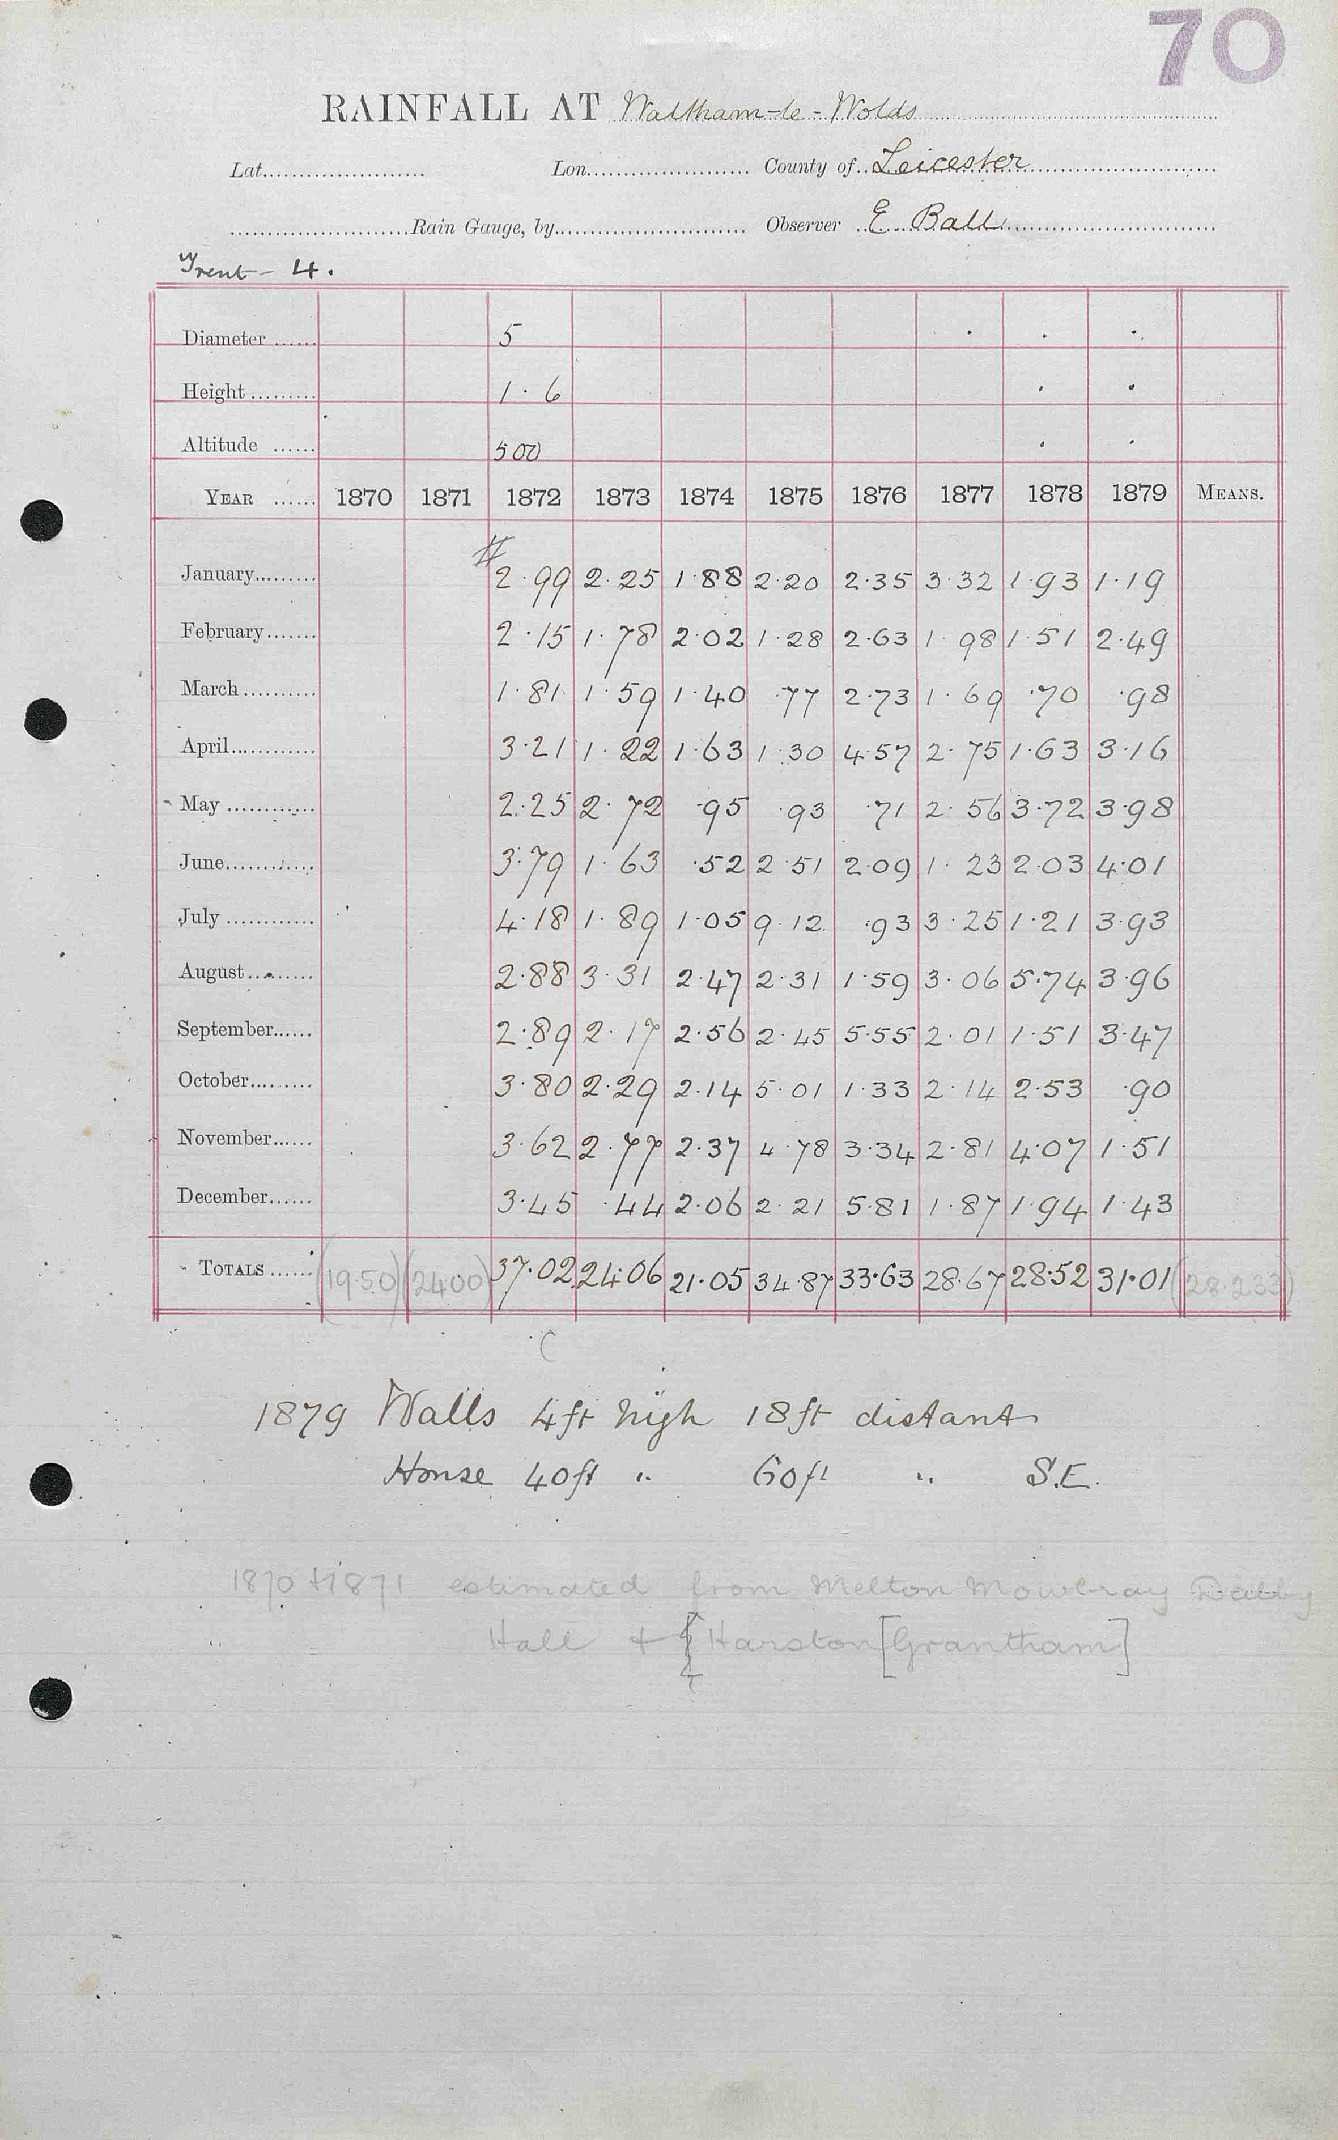 70
RAINFALL AT Waltham-le-Wolds
Lat. Lon. County of Leicester
Rain Gauge, by Observer E Ball
Trent - 4.
Diameter 5
Height 1.6
Altitude 500
YEAR 1870 1871 1872 1873 1874 1875 1876 1877 1878 1879 MEANS.
January 2.99 2.25 1.88 2.20 2.35 3.32 1.93 1.19
February 2.15 1.78 2.02 1.28 2.63 1.98 1.51 2.49
March 1.81 1.59 1.40 .77 2.73 1.69 .70 .98
April 3.21 1.22 1.63 1.30 4.57 2.75 1.63 3.16
May 2.25 2.72 .95 .93 .71 2.56 3.72 3.98
June 3.79 1.63 .52 2.51 2.09 1.23 2.03 4.01
July 4.18 1.89 1.05 9.12 .93 3.25 1.21 3.93
August 2.88 3.31 2.47 2.31 1.59 3.06 5.74 3.96
September 2.89 2.17 2.56 2.45 5.55 2.01 1.51 3.47
October 3.80 2.29 2.14 5.01 1.33 2.14 2.53 .90
November 3.62 2.77 2.37 4.78 3.34 2.81 4.07 1.51
December 3.45 .44 2.06 2.21 5.81 1.87 1.94 1.43
TOTALS (19.50) (24.00) 37.02 24.06 21.05 34.87 33.63 28.67 28.52 31.01 (28.233)
1879 Walls 4ft high 18ft distant
House 40ft " 60ft " S.E.
1870 + 1871 estimated from Melton Mowbray Dalby
Hall + Harston [Grantham]